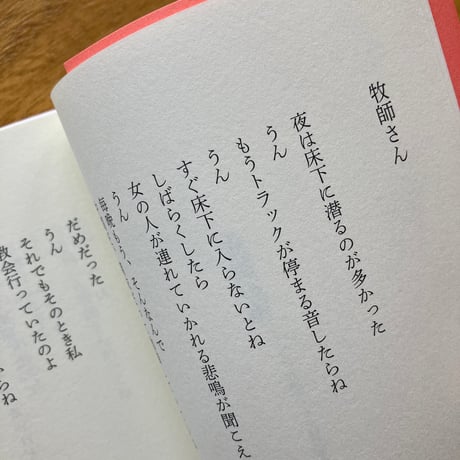 牧師さん
夜は床下に潜るのが多かった
うん
もうトラックが停まる音したらね
うん
すぐ床下に入らないとね
しばらくしたら
女の人が連れていかれる悲鳴が聞こえ
うん
毎晩もう、そんなんで
だめだった
うん
それでもそのとき私
教会行っていたのよ
らね